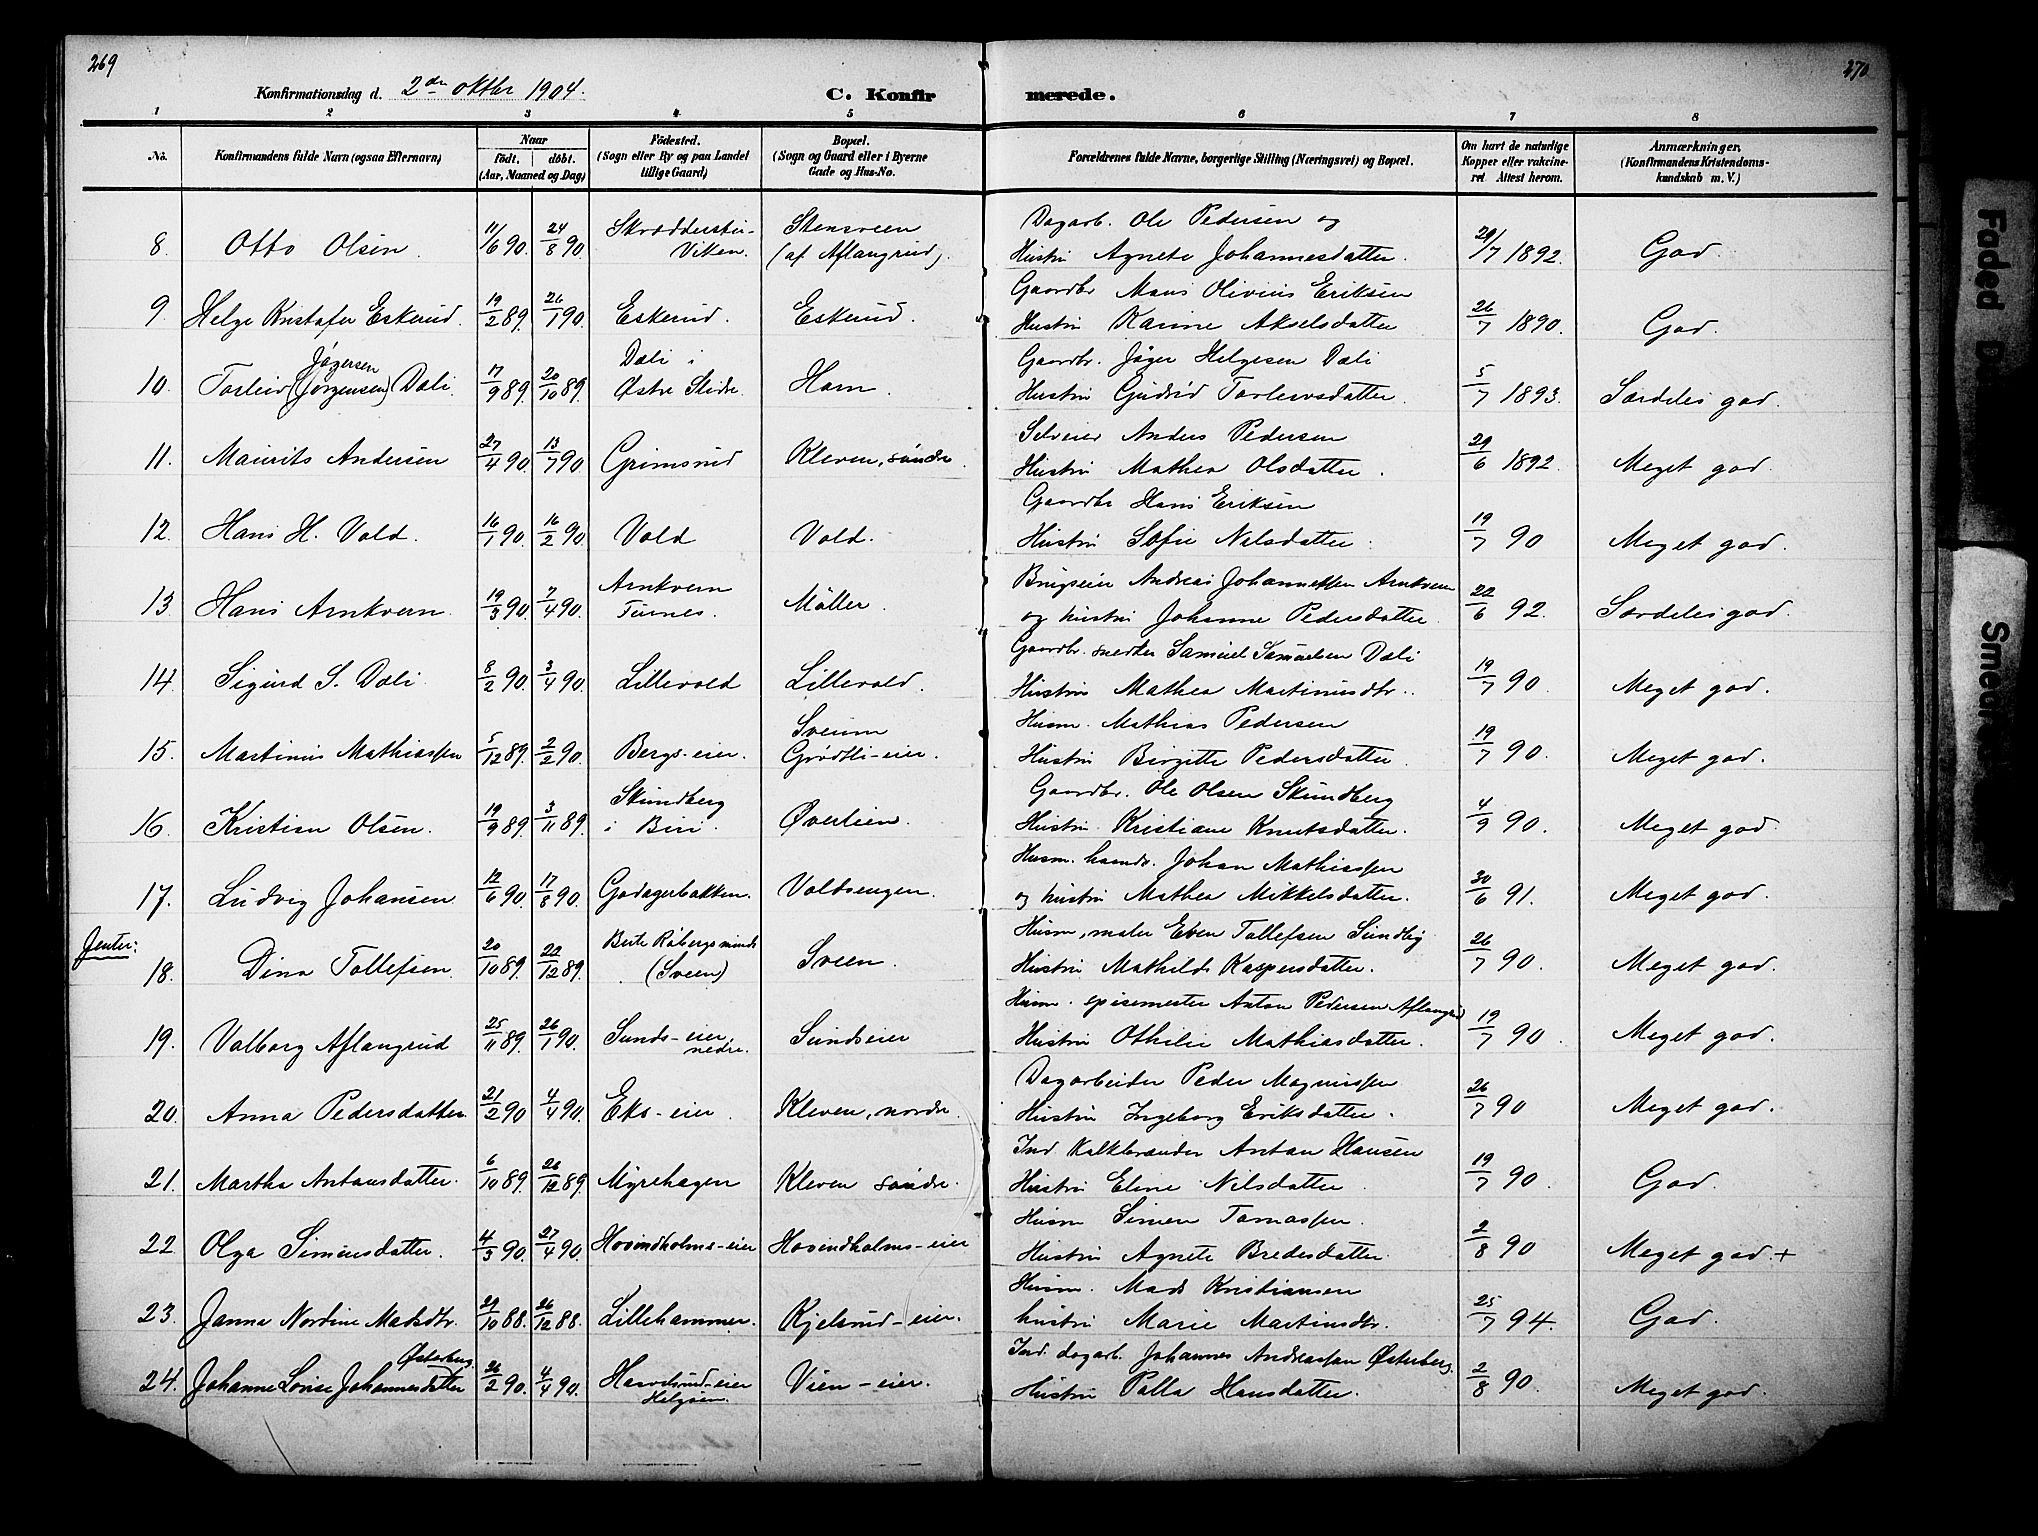 269
270
Konfirmationsdag d. 2den oktbr 1904.
C. Konfirmerede.
1 2 3 4 5 6 7 8
No.
Konfirmandens fulde Navn (ogsaa Efternavn)
Naar
födt. döbt.
(Aar, Maaned og Dag)
Födested.
(Sogn eller By og paa Landet
tillige Gaard)
Bopæl.
(Sogn og Gaard eller i Byerne
Gade og Hus-No.
Forældrenes fulde Navne, borgerlige Stilling (Næringsvei) og Bopæl.
Om havt de naturlige
Kopper eller vakcine-
ret Attest herom.
Anmærkninger,
(Konfirmandens Kristendoms-
kundskab m. V.)
8. Otto Olsen. 11/6 90. 24/8 90. Skrædderstu-Viken. Stensveen (af Aflangrud). Dagarb. Ole Pedersen og
Hustru Agnete Johannesdatter. 20/7 1892. God.
9. Helge Kristafer Eskerud. 19/2 89. 26/1 90. Eskerud. Eskerud. Gaardbr Mons Olivius Eriksen
Hustru Karine Akselsdatter 26/7 1890. God.
10. Torleiv Jøgersen (Jørgensen) Dæli. 17/9 89. 20/10 89. Dæli i Østre Slidre. Horn. Gaardbr. Jøger Helgesen Dæli
Hustru Gudrid Torleivsdatter. 5/7 1893. Særdeles god.
11. Maurits Andersen 27/4 90. 13/7 90. Grimsrud Kleven, søndre. Selveier Anders Pedersen
Hustru Mathea Olsdatter. 29/6 1892. Meget god.
12. Hans H. Vold. 16/1 90. 16/2 90. Vold Vold. Gaardbr Hans Eriksen
Hustru Sofie Nilsdatter. 19/7 90 Meget god.
13. Hans Arnkværn. 19/3 90. 7/4 90. Arnkværn Turnes. Möller. Brugseier Andreas Johannessen Arnkværn
og hustru Johanne Pedersdatter. 22/6 92. Særdeles god.
14. Sigurd S. Dæli. 8/2 90. 3/4 90. Lillevold Lillevold. Gaardbr. snedker Samuel Samuelsen Dæli
Hustru Mathea Martinusdtr. 19/7 90. Meget god.
15. Martinus Mathiassen 5/12 89. 2/2 90. Bergs-eier. Sveum Grødtli-eier. Husm. Mathias Pedersen
Hustru Birgitte Pedersdatter. 19/7 90. Meget god.
16. Kristian Olsen. 19/9 89. 3/11 89. Skundberg i Biri. Øverlien. Gaardbr. Ole Olsen Skundberg
Hustru Kristiane Knutsdatter. 4/9 90. Meget god.
17. Ludvig Johansen. 12/6 90. 17/8 90. Godagerbakken. Voldsengen. Husm. Johan Mathiassen
og hustru Mathea Mikkelsdatter. 30/6 91. Meget god.
Jenter:
18. Dina Tollefsen. 20/10 89. 22/12 89. (Sveen) Sveen. Husm, maler Even Tollefsen Sundby
Hustru Mathilde Kaspersdatter. 26/7 90. Meget god.
19. Valborg Aflangrud 25/11 89. 26/1 90. Sunds-eier, nedre. Sundseier Husm. spisemester Anton Pedersen Aflangrud
Hustru Othilie Mathiasdatter. 19/7 90. Meget god.
20. Anna Pedersdatter 21/2 90 4/4 90. Eks-eier. Kleven, nordre. Dagarbeider Peder Magnussen
Hustru Ingeborg Eriksdatter. 26/7 90 Meget god.
21. Martha Antonsdatter. 6/10 89. 26/12 89. Myrehagen Kleven søndre. Ind Kalkbrænder Anton Hansen
Hustru Eline Nilsdatter. 19/7 90. God.
22 Olga Simensdatter. 4/3 90. 27/4 90. Hovindholms-eier Hovindholms-eier Husm Simen Tomassen.
Hustru Agnete Bredesdatter. 2/8 90 Meget god. +
23. Janna Nordine Madsdtr. 29/10 88. 26/12 88. Lillehammer. Kjelsrud-eier. Husm. Mads Kristiansen
hustru Marie Martinsdtr. 25/7 94. God.
24. Johanne Lovise Johannesdatter Østerberg. 26/2 90. 4/4 90. Helgøen. Vien-eier. Ind. dagarb. Johannes Andreassen Østerberg.
Hustru Palla Hansdatter. 2/8 90. Meget god.
Faded